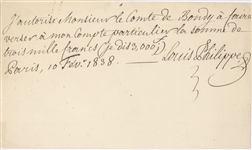 J'autorise Monsieur le Comte de Bondy à faire
verser à mon Compte particulier la somme de
trois mille francs (je dis 3,000 f)
Paris, 10 Fév.r 1838. Louis Philippe